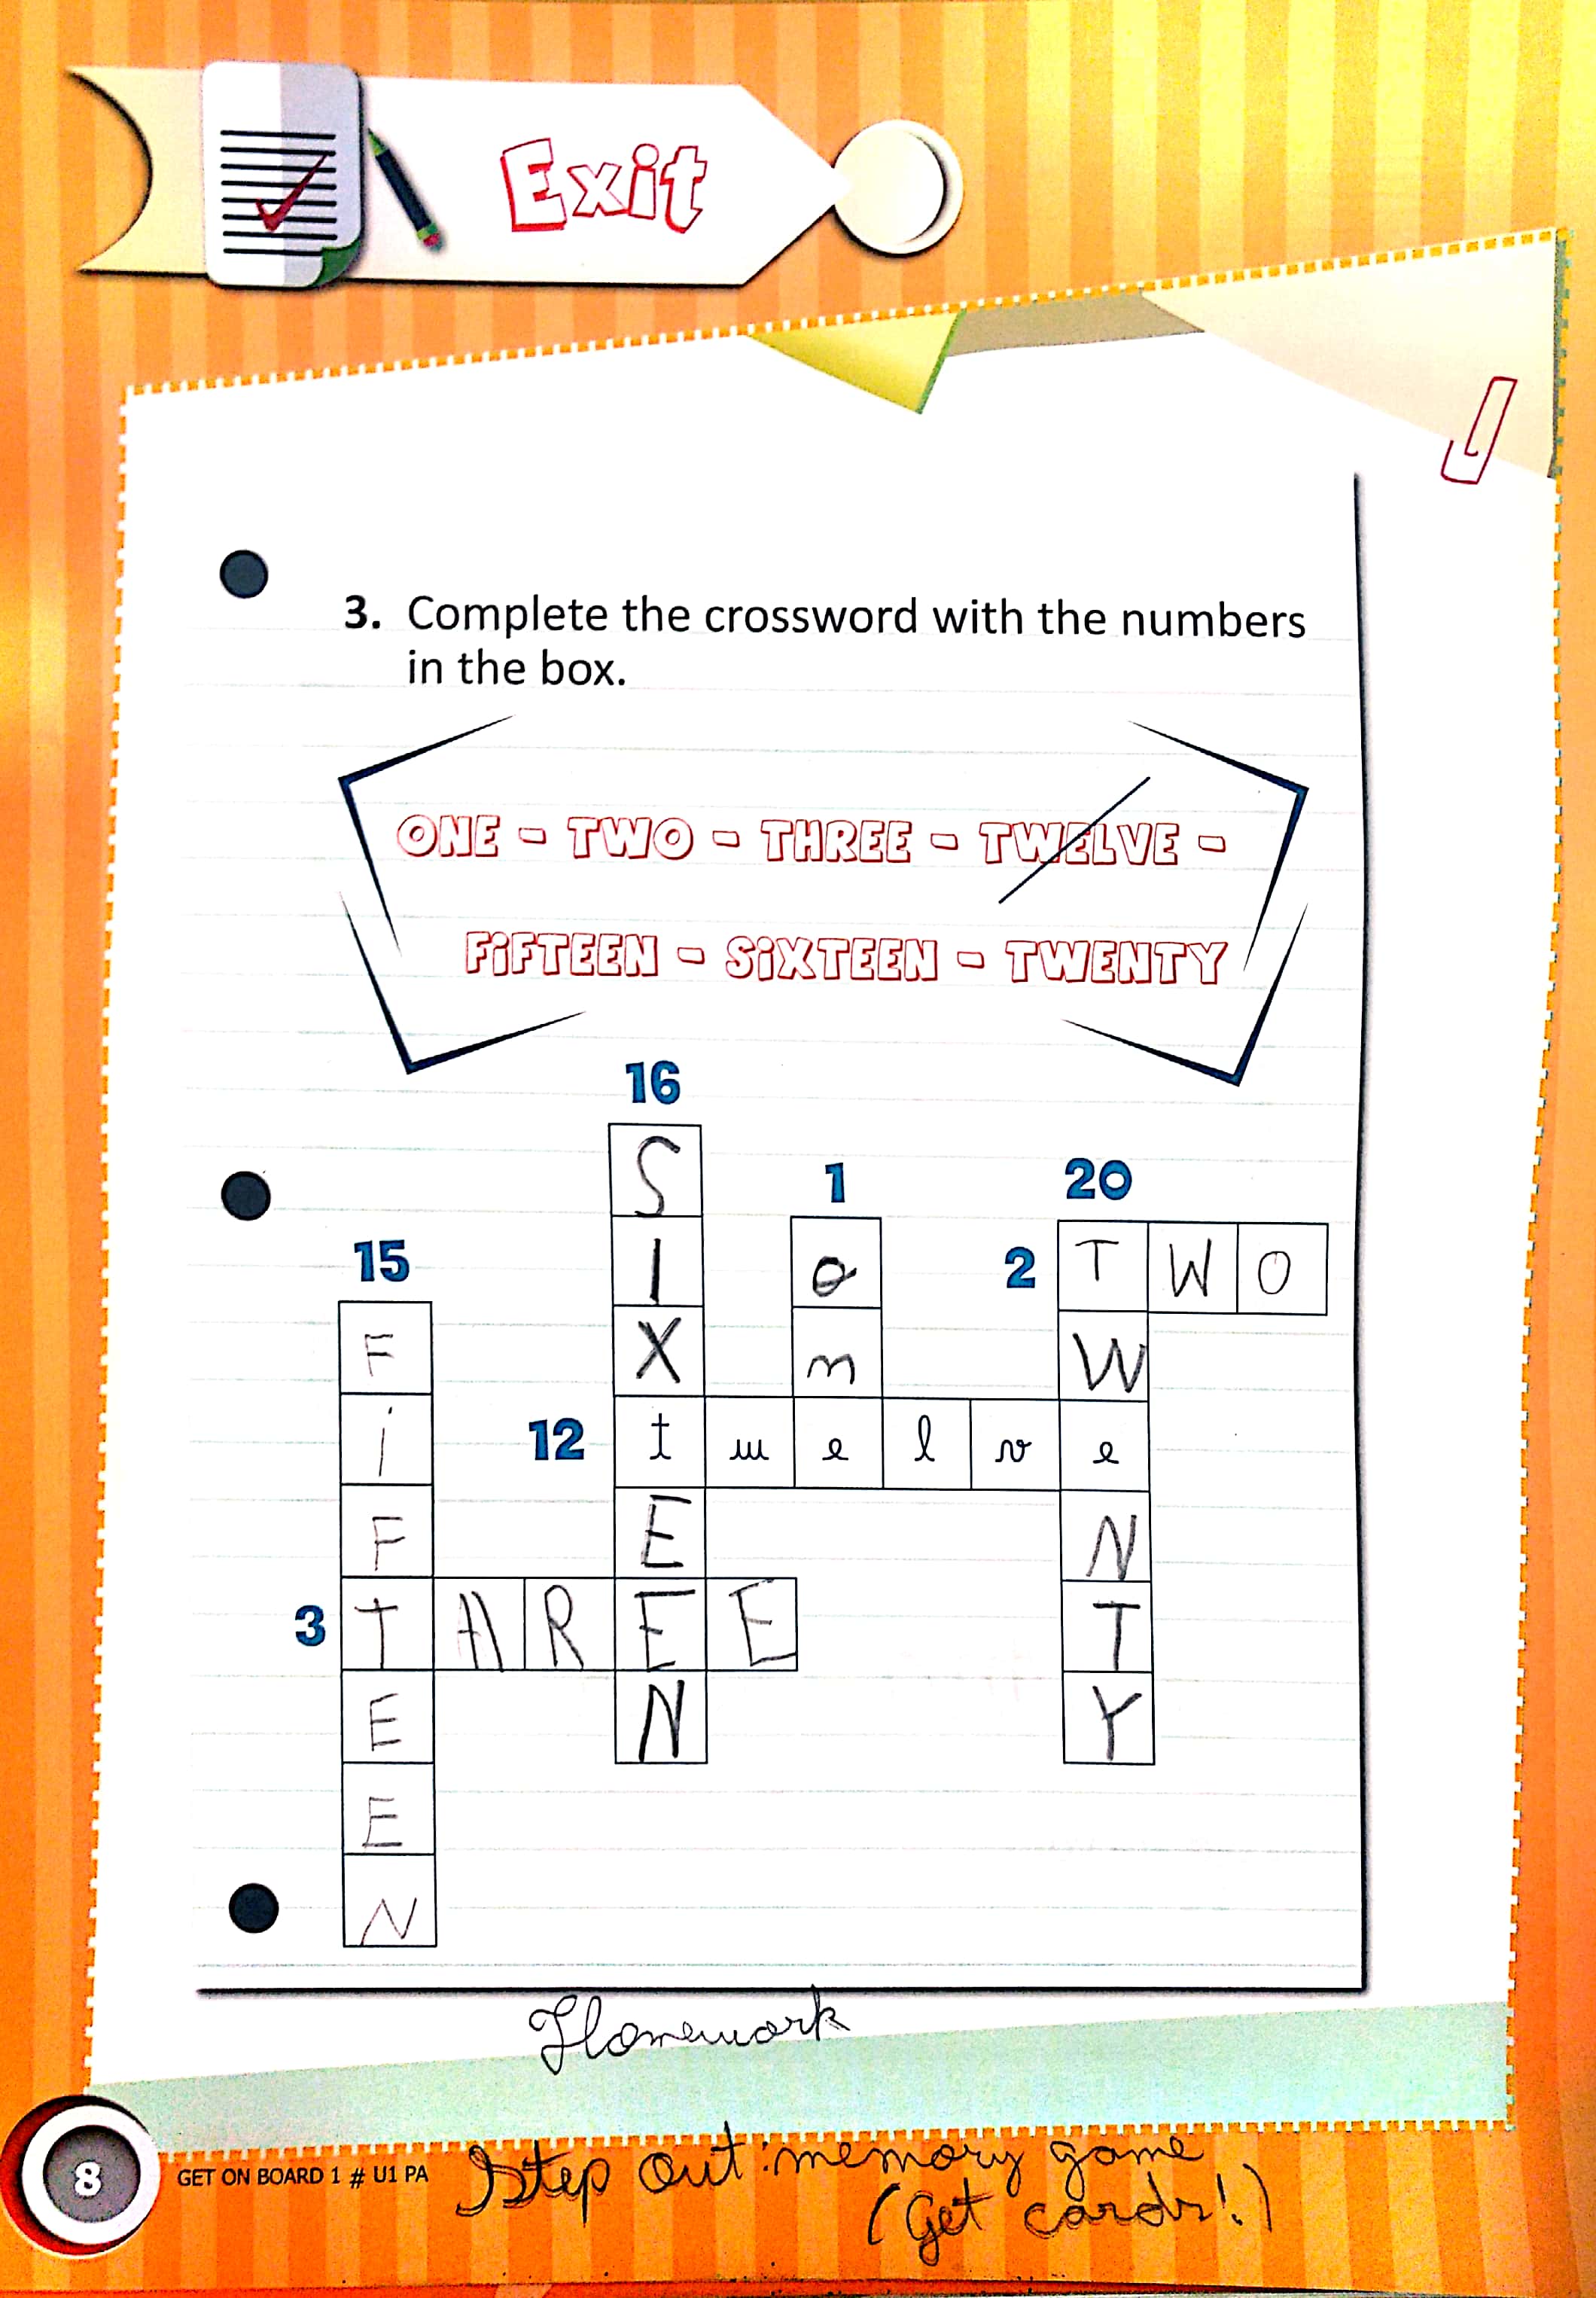 Exit
3. Complete the crossword with the numbers
in the box.
ONE - TWO - THREE - TWELVE -
FiFTEEN - SiXTEEN - TWENTY
16
S
1
20
15
I
o
2
T W O
F
X
n
W
i
12
t w e l v e
F
E
N
3
T H R E E
T
E
N
Y
E
N
Homework
8
GET ON BOARD 1 # U1 PA
Step out: memory game
(Get cards!)